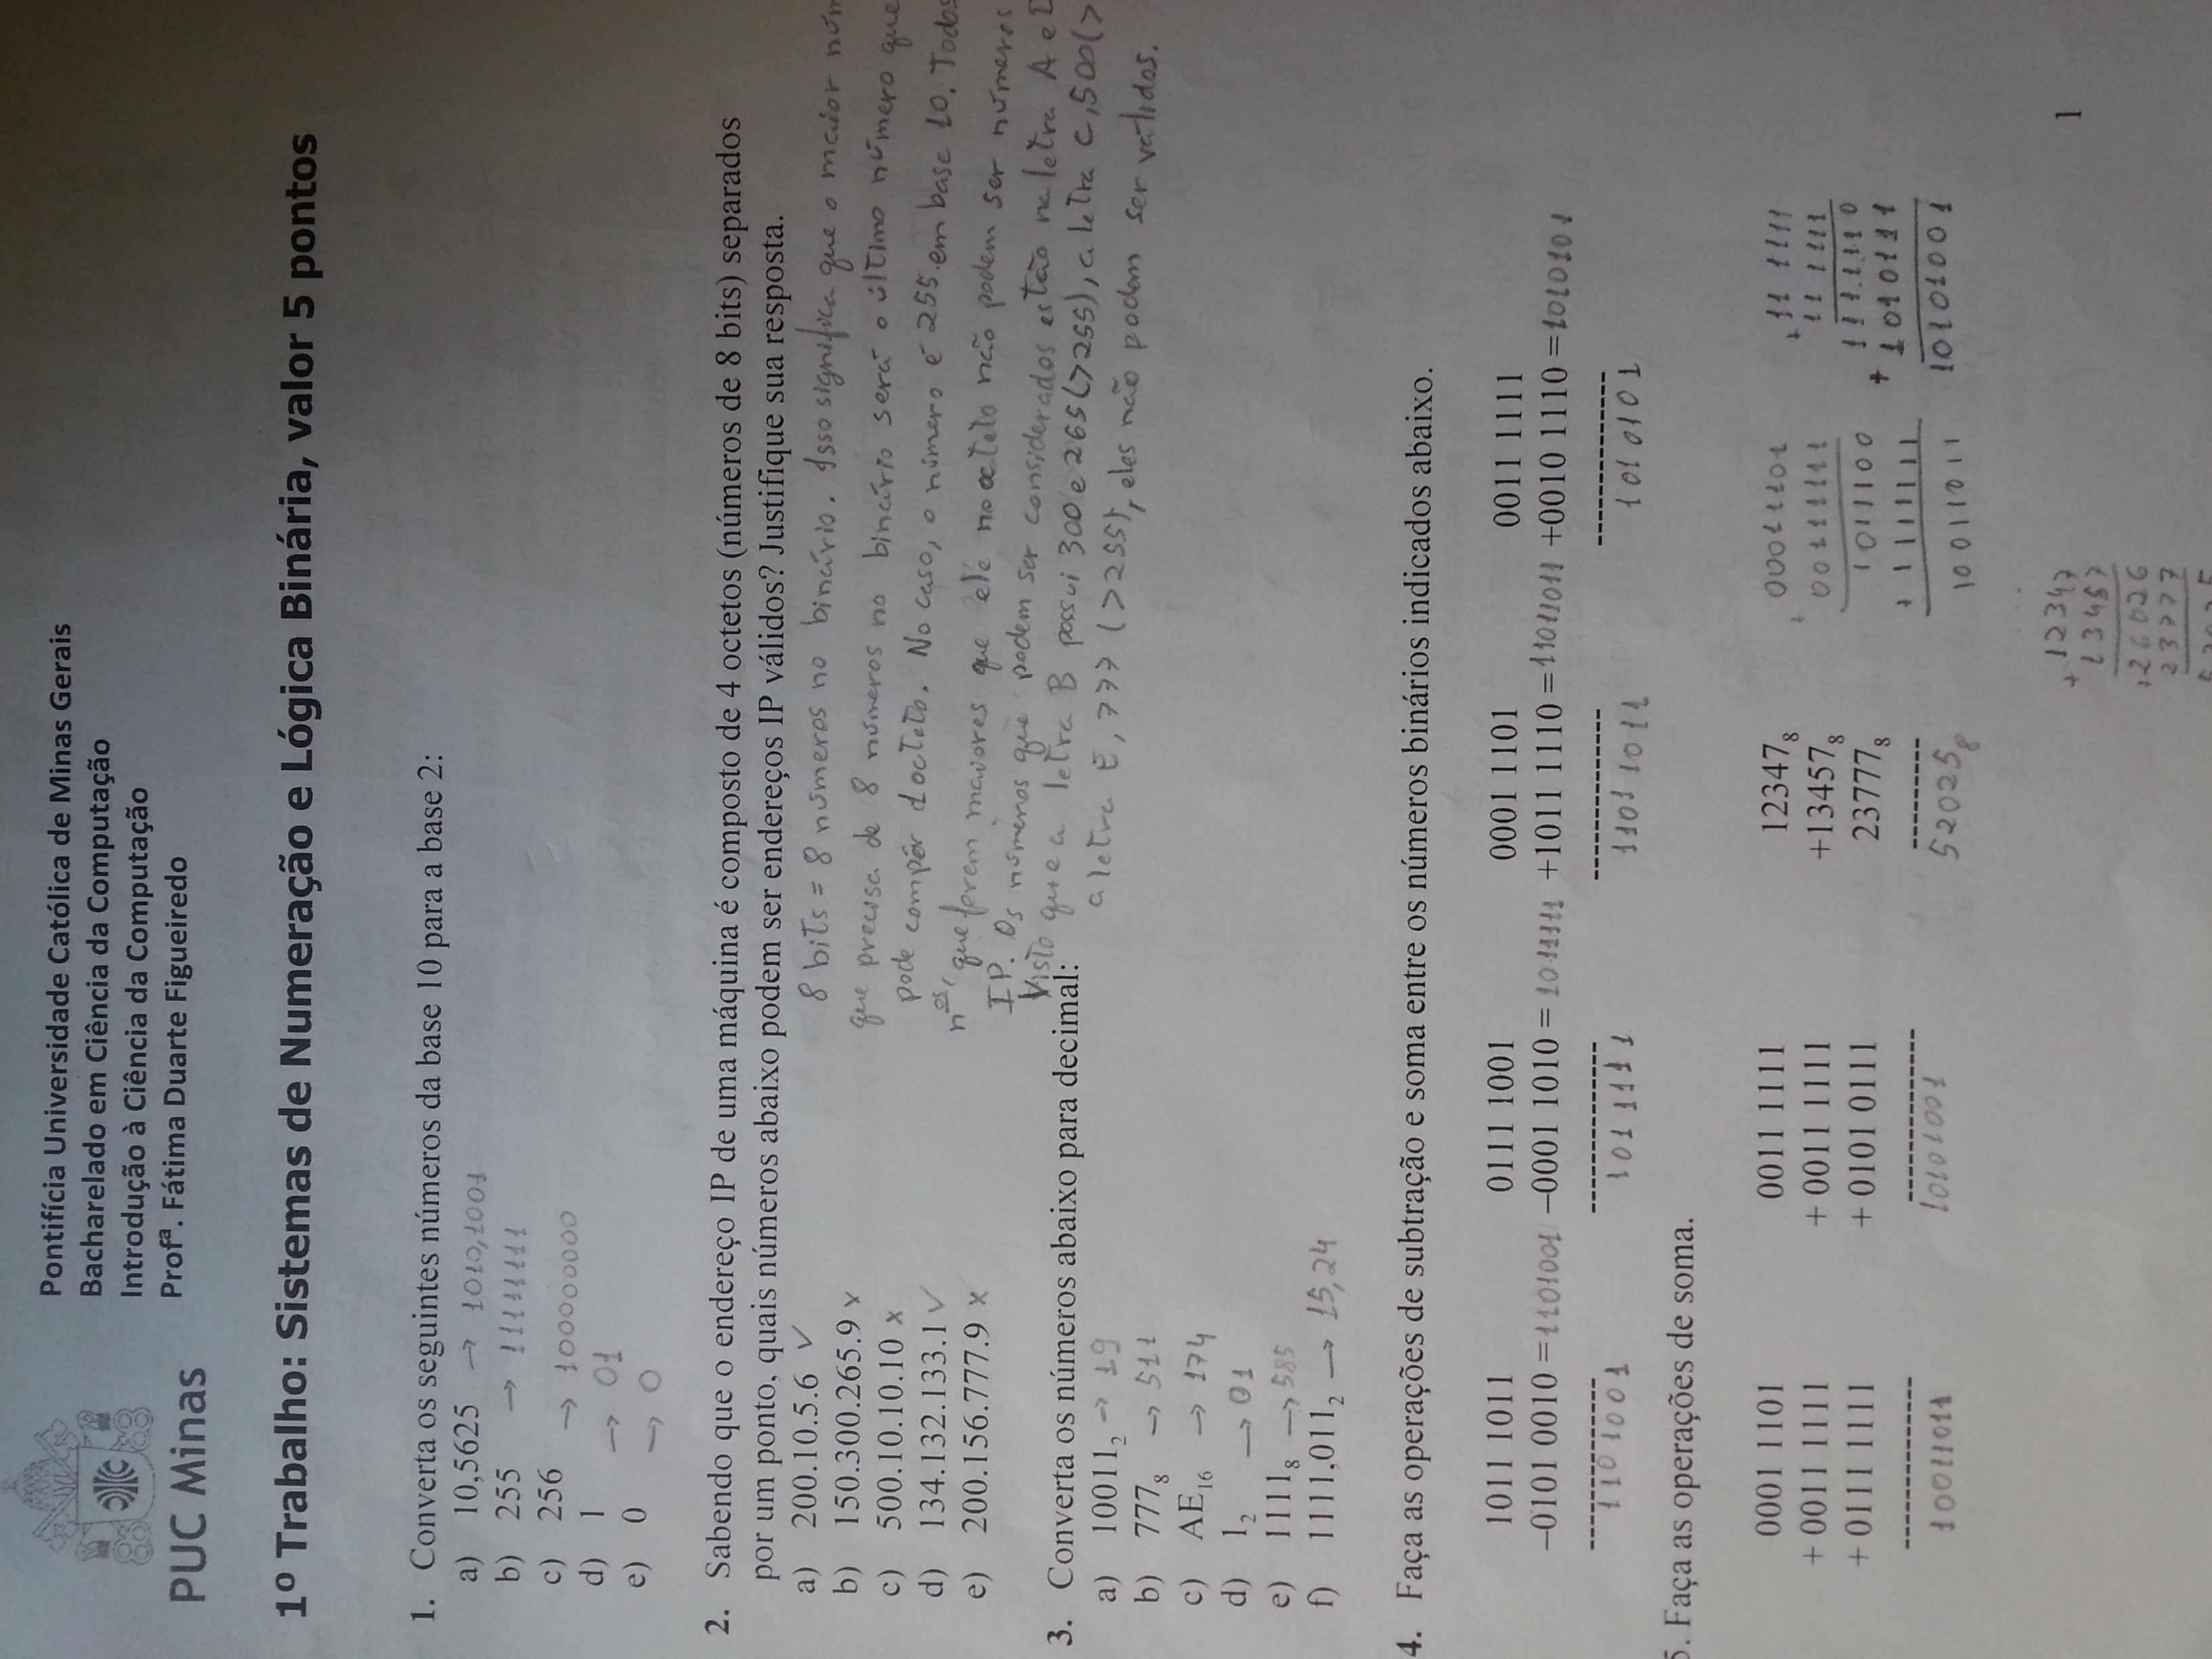 Pontifícia Universidade Católica de Minas Gerais
Bacharelado em Ciência da Computação
Introdução à Ciência da Computação
Profª. Fátima Duarte Figueiredo
PUC Minas
1º Trabalho: Sistemas de Numeração e Lógica Binária, valor 5 pontos
1. Converta os seguintes números da base 10 para a base 2:
a) 10,5625 → 1010,1001
b) 255 → 11111111
c) 256 → 100000000
d) 1 → 01
e) 0 → 0
2. Sabendo que o endereço IP de uma máquina é composto de 4 octetos (números de 8 bits) separados
por um ponto, quais números abaixo podem ser endereços IP válidos? Justifique sua resposta.
a) 200.10.5.6 ✓
b) 150.300.265.9 x
c) 500.10.10.10 x
d) 134.132.133.1 ✓
e) 200.156.777.9 x
8 bits = 8 números no binário. Isso significa que o maior núm
que precisa de 8 números no binário será o último número que
pode compôr 1 octeto. No caso, o número é 255 em base 10. Todos
nos, que forem maiores que ele no octeto não podem ser números
IP. Os números que podem ser considerados estão na letra A e D
Visto que a letra B possui 300 e 265 (>255), a letra C, 500 (>
a letra E, 777 (>255), eles não podem ser válidos.
3. Converta os números abaixo para decimal:
a) 10011₂ → 19
b) 777₈ → 511
c) AE₁₆ → 174
d) 1₂ → 01
e) 1111₈ → 585
f) 1111,011₂ → 15,24
4. Faça as operações de subtração e soma entre os números binários indicados abaixo.
1011 1011 0111 1001 0001 1101 0011 1111
–0101 0010 = 1101001 –0001 1010 = 1011111 +1011 1110 = 11011011 +0010 1110 = 1010101
1101001 1011111 11011011 1010101
5. Faça as operações de soma.
0001 1101 0011 1111 12347₈ 00011101 + 11 1111
+ 0011 1111 + 0011 1111 +13457₈ + 00111111 11 1111
+ 0111 1111 + 0101 0111 23777₈ 1011100 1111110
+ 1111111 + 1010111
10011011 10101001 52025₈ 10011011 10101001
+ 12347
13457
+26026
23777
52025
1